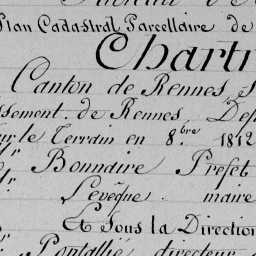 Plan Cadastral Parcellaire de
Chartr
Canton de Rennes,
ssement. de Rennes, Dép
ur le Terrain en 8.bre 1812
Mr Bonnaire Préfet
Mr Levêque. maire
Et Sous la Direction
Pontallié directeur